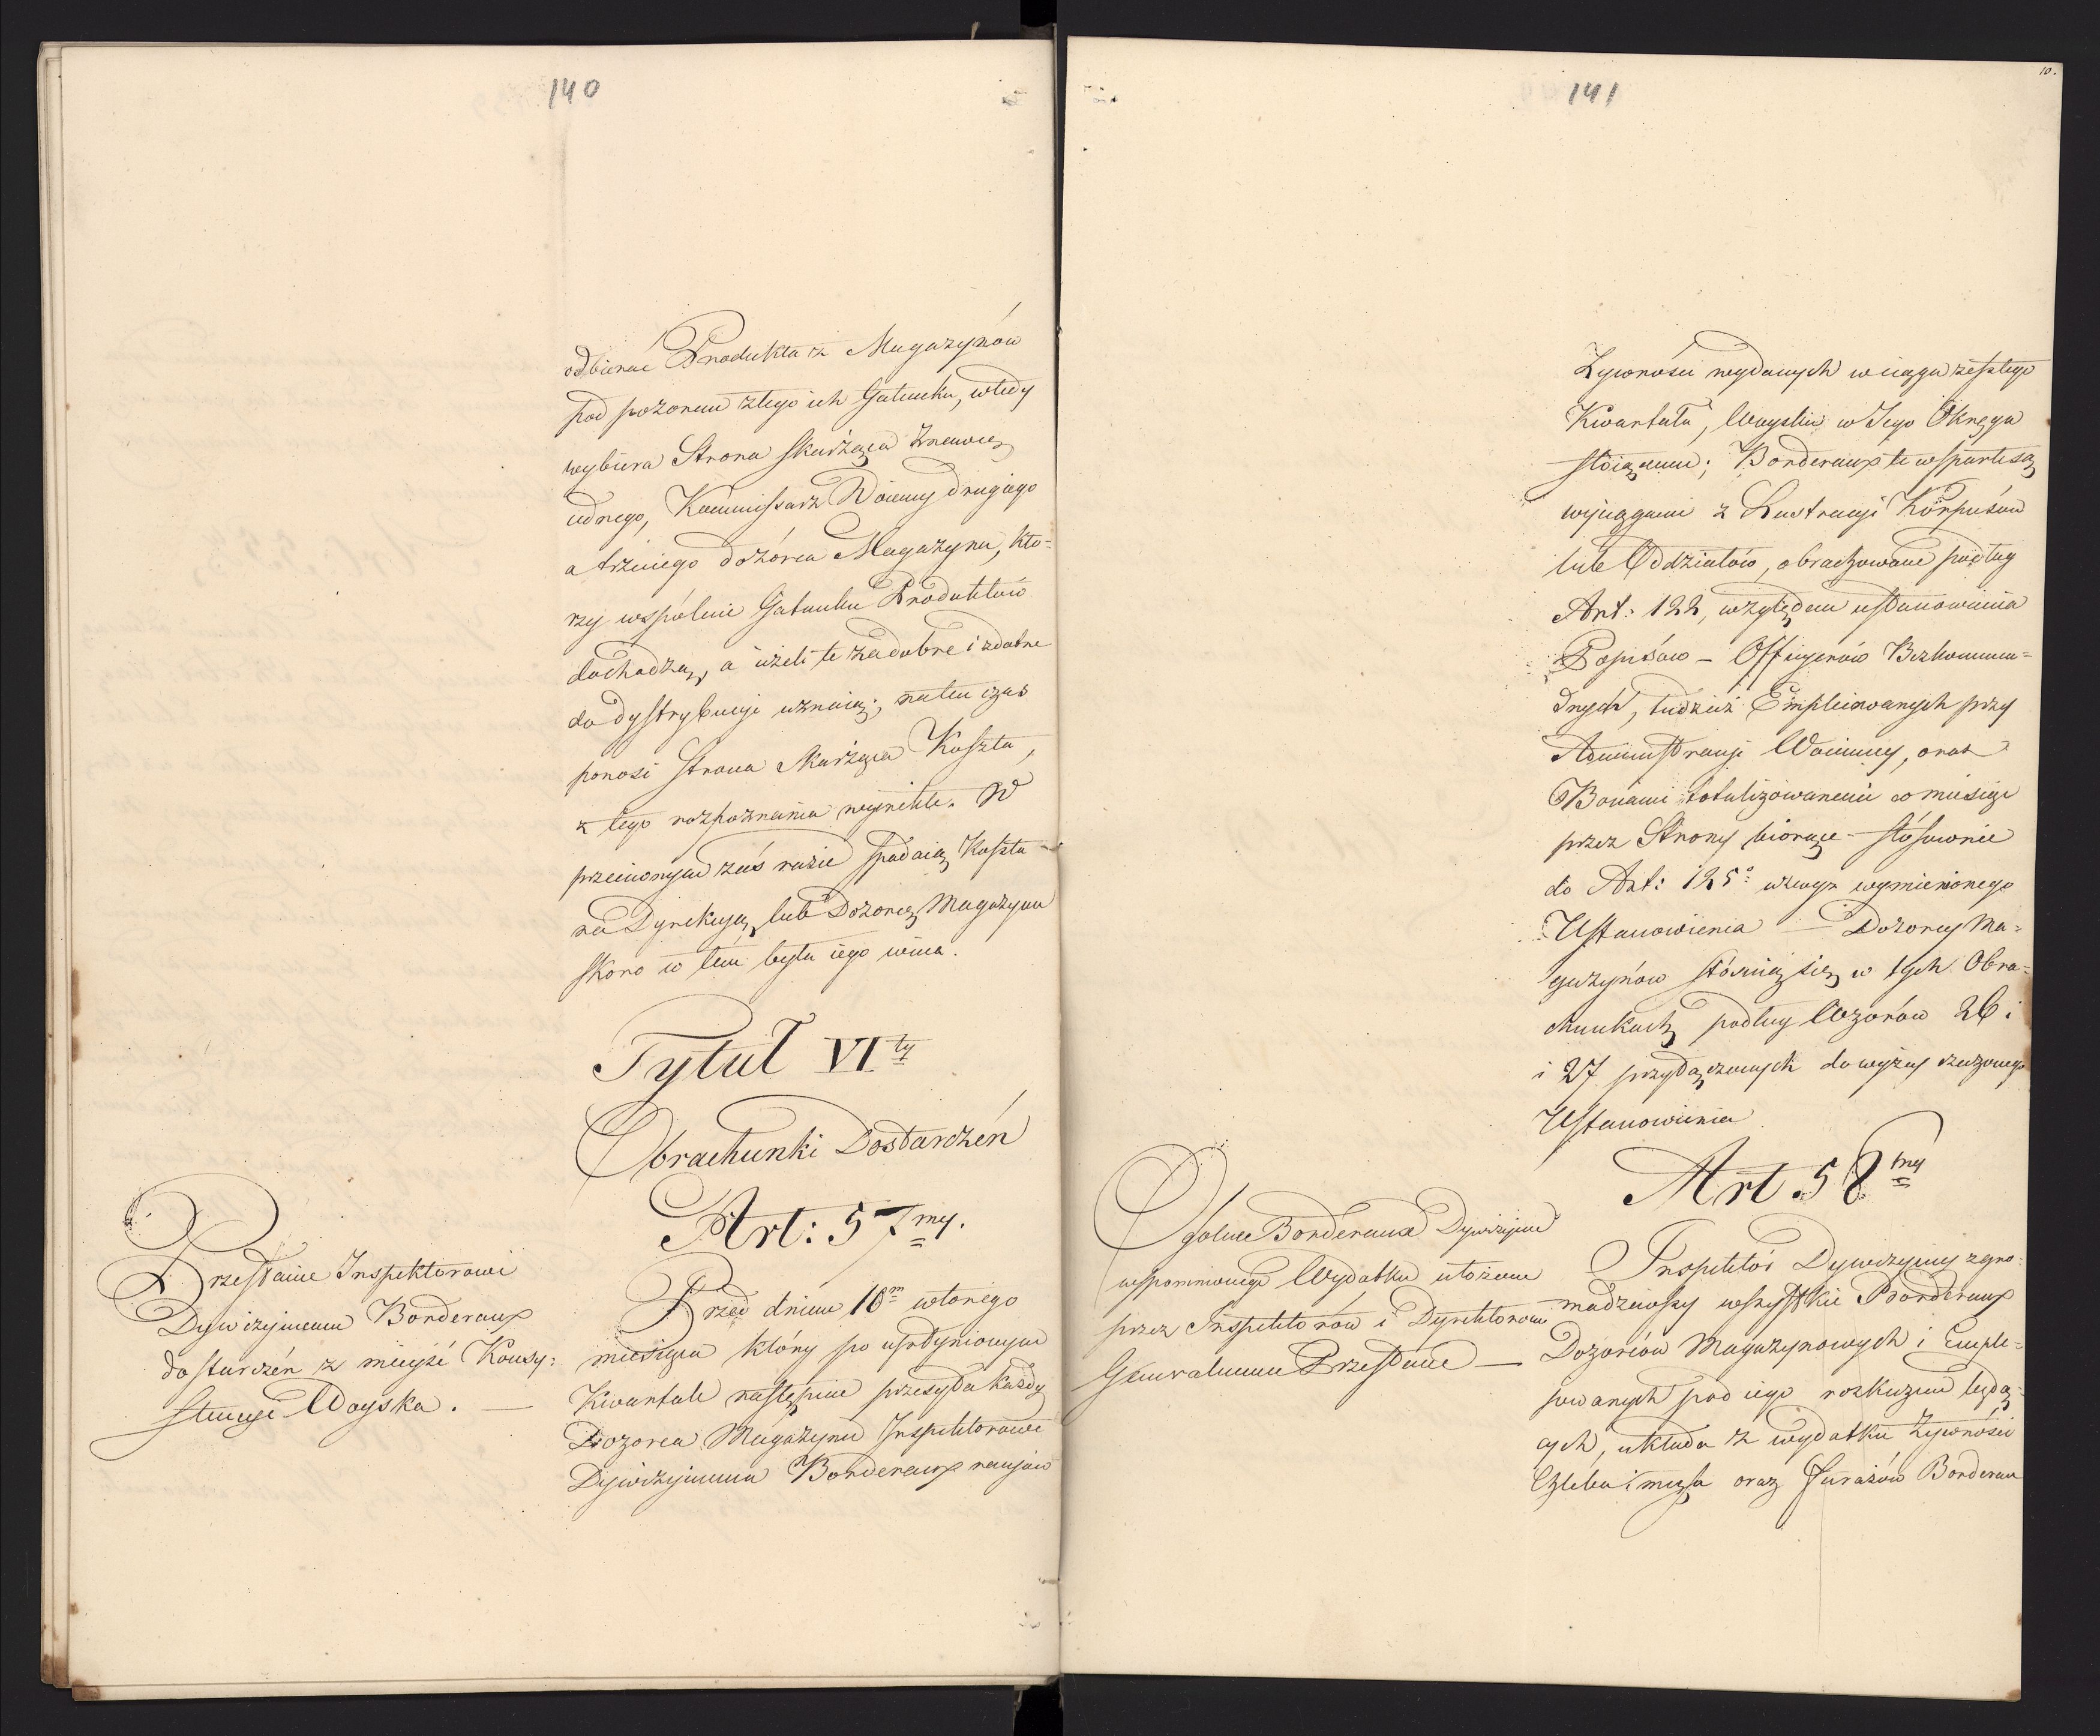 140
odbierać Produkta z Magazynów
pod pozorem złego ich Gatunku, wtedy
wybiera Strona skarżąca znawcę
iednego, Kommissarz Woienny drugiego
a trzeciego dozórca Magazynu, któ=
rzy wspólnie Gatunku Produktów
dochodzą, a ieżeli te za dobre i zdatne
do dystrybucyi uznaią; na ten czas
ponosi strona skarżąca Koszta,
z tego rozpoznania wynikłe. W
przeciwnym zaś razie spadaią Koszta
na Dyrekcyą, lub Dozorcę Magazynu
skoro w tém była iego wina.
Tytuł VI ty
Obrachunki Dostarczeń
Art: 57 my.
Przesłanie Inspektorowi
Dywizyjnemu Borderaux
dostarczeń z mieysć Konsy:
stencyi Woyska. —
Przed dniem 10 m wtórego
miesiąca który po upłynionym
Kwartale następuie przesyła każdy
Dozorca Magazynu Inspektorowi
Dywizyjnemu Borderaux racyów
141
10.
Żywności wydanych w ciągu zeszłego
Kwartału, Woysku w Iego Okręgu
stoiącemu; Borderaux te wsparte są
wyciągami z Lustracyi Korpusów
lub Oddziałów, obrachowane podług
Art: 122, względem ustanowienia
Popisów - Officyerów Bezkommen=
dnych, tudzież Empleiowanych przy
Administracyi Woienney, oraz
Bonami totalizowanemi co miesiąc
przez Strony biorące - stósownie
do Art: 125° wzwyz wymienionego
Ustanowienia — Dozorcy Ma=
gazynów stósuią się w tych Obra=
chunkach podług Wzorów 26 i
i 27 przydączonych do wyżey rzeczonego
Ustanowienia
Art 58 my
Ogólne Borderaux Dywizyjne
wspomnionego Wydatku ułożone
przez Inspektorów i Dyrektorowi
Generalnemu Przesłane —
Inspektór Dywizyiny zgro=
madziwszy wszystkie Borderaux
Dozorców Magazynowych i Emple=
iowanych pod iego rozkazem będą=
cych, układa z wydatku Żywności
Chleba i mięsa oraz Furażów Borderau